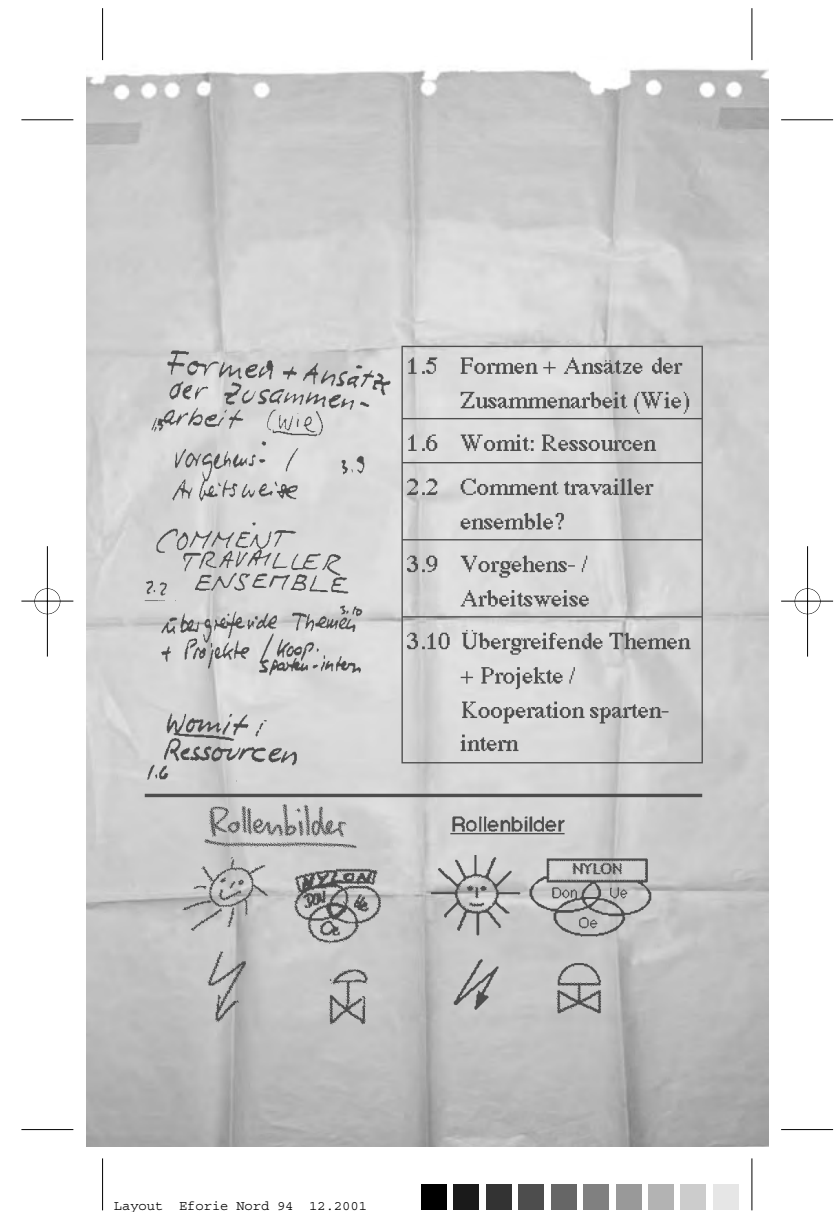 Formen + Ansätze
der Zusammen-
arbeit (Wie)
1.5
Vorgehens- /
3.9
Arbeitsweise
COMMENT
TRAVAILLER
2.2 ENSEMBLE
3.10
übergreifende Themen
+ Projekte / Koop.
sparten-intern
Womit:
Ressourcen
1.6
1.5 Formen + Ansätze der
Zusammenarbeit (Wie)
1.6 Womit: Ressourcen
2.2 Comment travailler
ensemble?
3.9 Vorgehens- /
Arbeitsweise
3.10 Übergreifende Themen
+ Projekte /
Kooperation sparten-
intern
Rollenbilder
NYLON
DON Ue
Oe
Rollenbilder
NYLON
Don Ue
Oe
Layout Eforie Nord 94 12.2001